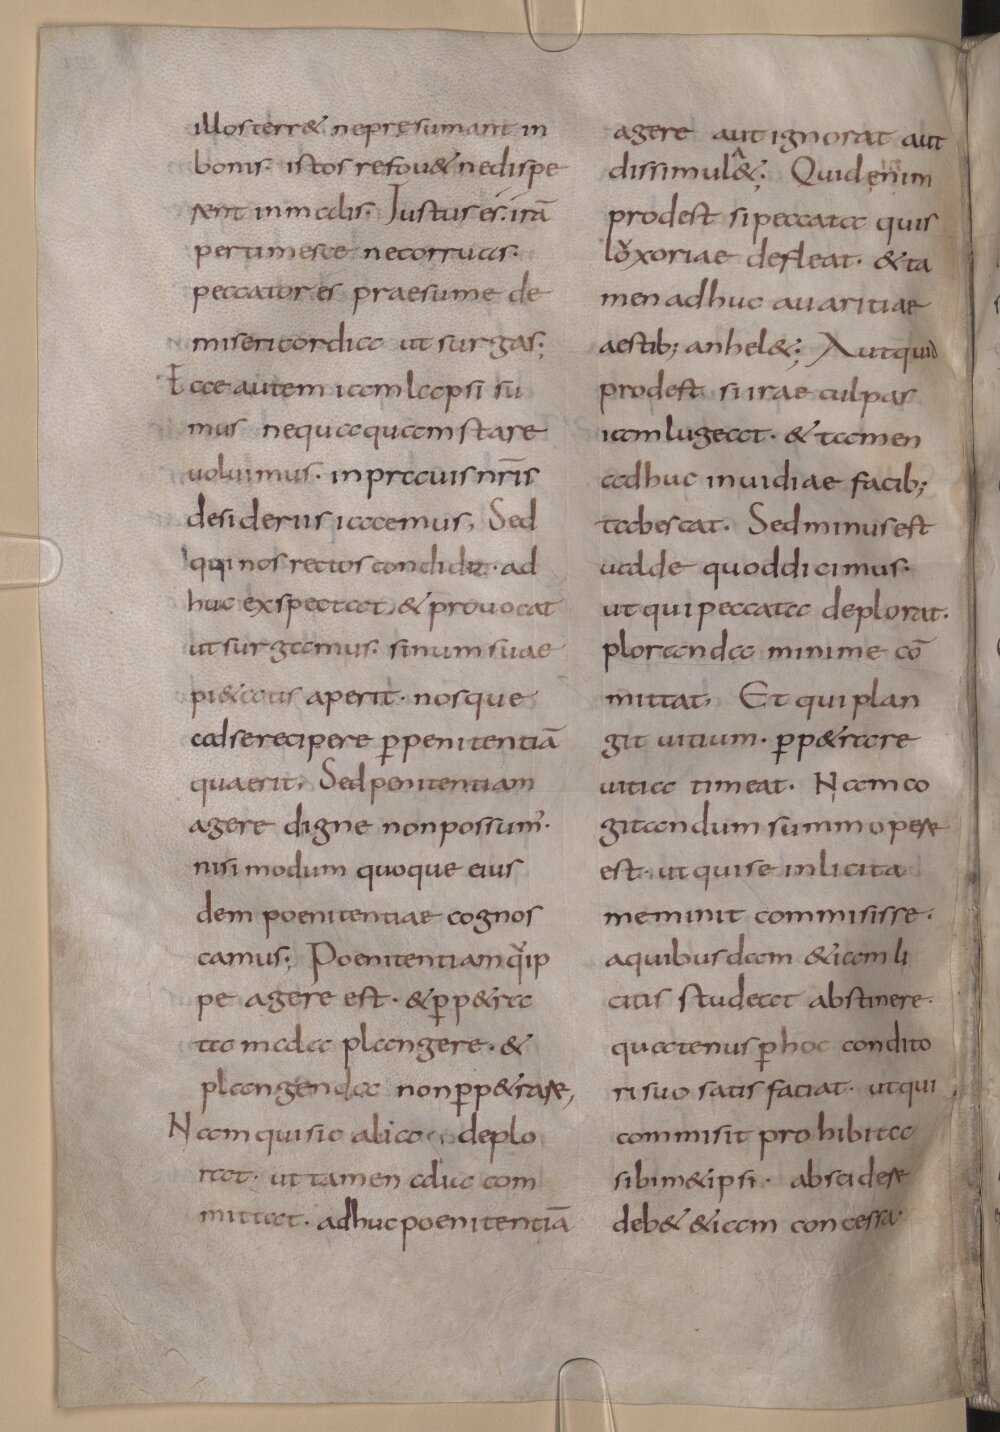 illos terr& ne presumant in
bonis. istos refou& ne dispe
rent in malis. Iustus es. irā
pertimesce ne corruas.
peccator es praesume de
misericordia ut surgas;
Ecce autem iam lapsi su
mus nequaquam stare
uoluimus. in prauis nr̄is
desideriis iacemus, Sed
qui nos rectos condidit. ad
huc exspectat, & prouocat
ut surgamus. sinum suae
pi&atis aperit. nosque
ad se recipere p̱ penitentiā
quaerit. Sed penitentiam
agere digne non possum'.
nisi modum quoque eius
dem poenitentiae cognos
camus; Poenitentiam quip
pe agere est. & p̱p&ra
ta mala plangere. &
plangenda non p̱p&rare,
Nam qui sic alia deplo
rat. ut tamen aduc com
mittat. adhuc poenitentiā
agere aut ignorat aut
dissimul&; Quid enim
prodest si peccata quis
loxoriae defleat. & ta
men adhuc auaritiae
aestib; anhel&; Aut quid
prodest si irae culpas
iam lugeat. & tamen
adhuc inuidiae facib;
tabescat. Sed minus est
ualde quod dicimus.
ut qui peccata deplorat.
ploranda minime cō
mittat, Et qui plan
git uitium. p̱p&rare
uitia timeat. Nam co
gitandum summopere
est. ut qui se inlicita
meminit commisisse.
a quibusdam &iam li
citis studeat abstinere.
quatenus p̱ hoc condito
ri suo satis faciat. ut qui
commisit prohibita
sibim&ipsi. abscidere
deb& &iam concessa.